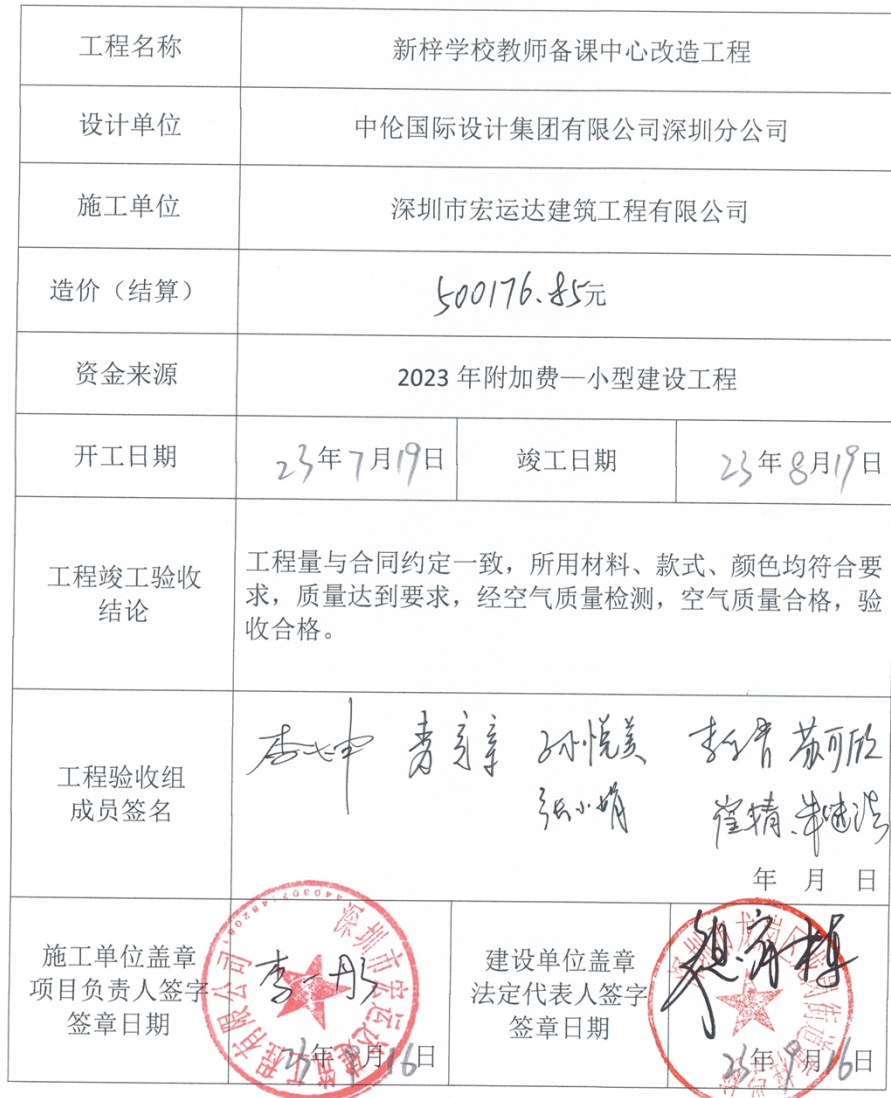 工程名称 新梓学校教师备课中心改造工程
设计单位 中伦国际设计集团有限公司深圳分公司
施工单位 深圳市宏运达建筑工程有限公司
造价（结算） 500176.85元
资金来源 2023 年附加费—小型建设工程
开工日期 23年7月19日 竣工日期 23年8月19日
工程竣工验收
结论
工程量与合同约定一致，所用材料、款式、颜色均符合要
求，质量达到要求，经空气质量检测，空气质量合格，验
收合格。
工程验收组
成员签名
孙悦美 苏可欣
张小娟 崔精
年 月 日
施工单位盖章
项目负责人签字
签章日期
李一彤
深圳市宏运达建筑工程有限公司
23年9月16日
建设单位盖章
法定代表人签字
签章日期
23年9月16日